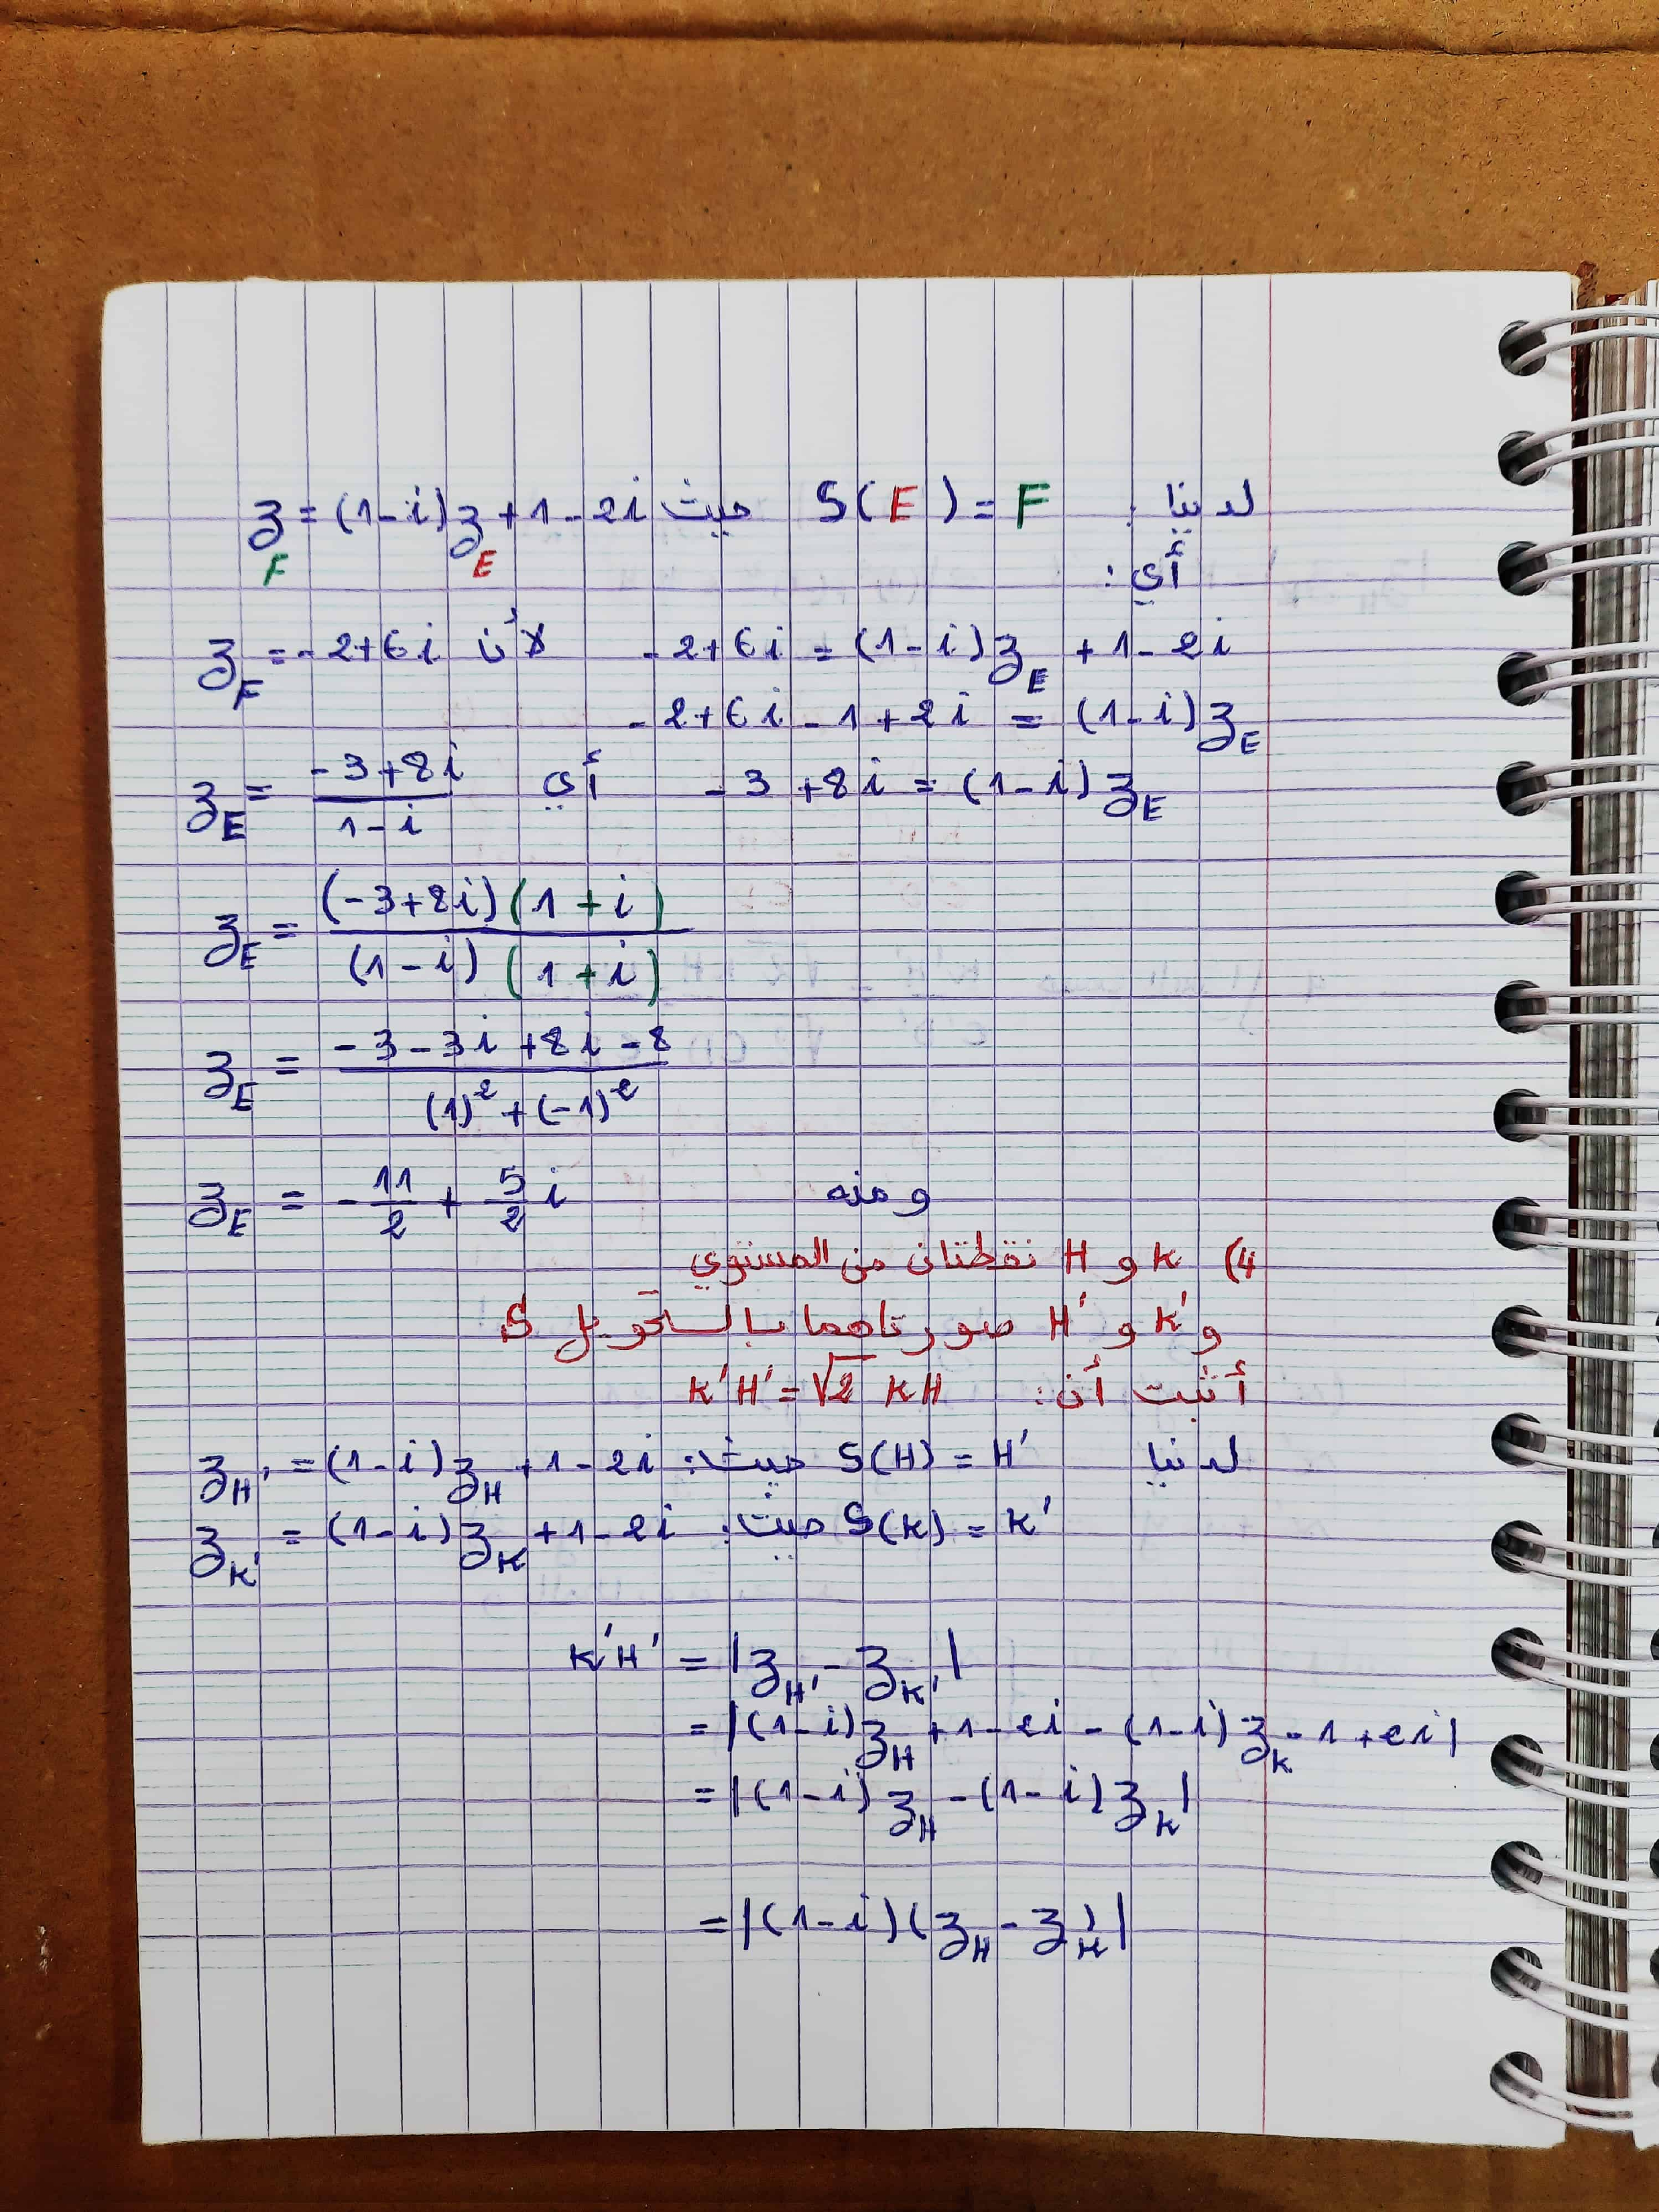 لدينا : S(E) = F حيث z_F = (1-i)z_E + 1 - 2i
أي :
-2+6i = (1-i)z_E + 1 - 2i لأن z_F = -2+6i
-2+6i-1+2i = (1-i)z_E
-3+8i = (1-i)z_E أي z_E = \frac{-3+8i}{1-i}
z_E = \frac{(-3+8i)(1+i)}{(1-i)(1+i)}
z_E = \frac{-3-3i+8i-8}{(1)^2+(-1)^2}
ومنه z_E = -\frac{11}{2} + \frac{5}{2}i
4) K و H نقطتان من المستوي
و K' و H' صورتاهما بالتحويل S
أثبت أن: K'H' = √2 KH
لدينا S(H) = H' حيث: z_{H'} = (1-i)z_H + 1 - 2i
S(K) = K' حيث: z_{K'} = (1-i)z_K + 1 - 2i
K'H' = |z_{H'} - z_{K'}|
= |(1-i)z_H + 1 - 2i - (1-i)z_K - 1 + 2i|
= |(1-i)z_H - (1-i)z_K|
= |(1-i)(z_H - z_K)|